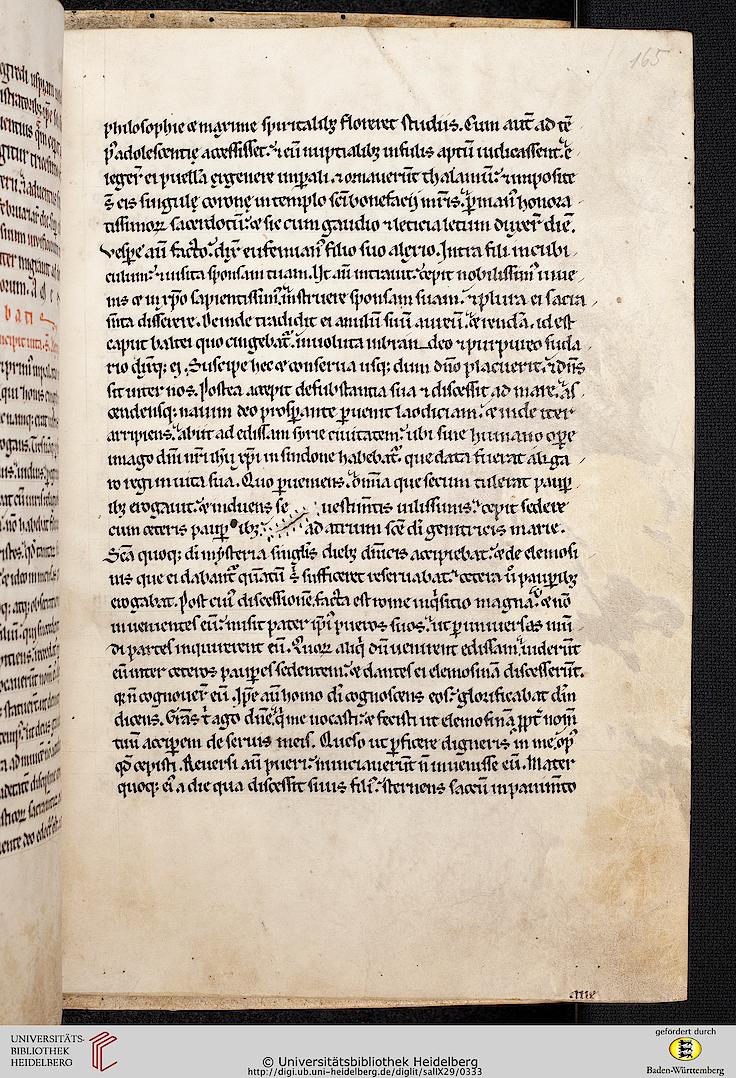 165
philosophie & maxime spiritalib; floreret studiis. Cum aut ad te
p adolescentie accessisset. & eu nuptialib; infulis aptu iudicassent. e
legert ei puella ex genere imperiali. & ornaverut thalamu. & imposite
s eis singule corone in templo sci bonefacij mris. p man honora
tissimor sacerdotu. & sic cum gaudio & leticia letum duxer die.
Vespe au facto. dix eufemian filio suo alexio. Intra fili in cubi
culum. & visita sponsam tuam. Ut au intravit. cepit nobilissim iuve
nis & in xpo sapientissim. instruere sponsam suam. & plura ei sacra
mta disserere. Deinde tradidit ei anulu suu aureu. & renda. id est
caput baltei quo cingebat. involuta in & purpureo suda
rio dixq; ei. Suscipe hec & conserva usq; dum dno placuerit. & dns
sit inter nos. Postea accepit de substantia sua & discessit ad mare. as
cendensq; navim deo prosperante pvenit laodiciam. & inde iter
arripiens. abiit ad edissam syrie civitatem. ubi sine humano ope
imago dni nri ihu xpi in sindone habebat. que data fuerat abga
ro regi in vita sua. Quo pveniens. omia que secum tulerat paup
ib; erogavit. & induens se vestimtis vilissimis. cepit sedere
cum ceteris paup ib; ad atrium sce di genitricis marie.
Sca quoq; di mysteria singlis dieb; dnicis accipiebat. & de elemosi
nis que ei dabant quatu s sufficeret reservabat. & cetera v paupib;
erogabat. Post cui discessione. facta est rome inqsitio magna. & no
invenientes eu. misit pater ipi pueros suos. ut p universas mun
di partes inquirerent eu. Quor aliq du venirent edissam. viderut
eu inter ceteros paupes sedentem. & dantes ei elemosina discesserut.
qn cognover eu. Ipe au homo di cognoscens eos. glorificabat dm
dicens. Gras t ago dne. q me vocasti. & fecisti ut elemosina ppt nom
tuu acciperem de servis meis. Queso ut pficere digneris in me. op
qd cepisti. Reversi au pueri. nunciaverut n invenisse eu. Mater
quoq; ei a die qua discessit suus fili. sternens saccu in pavimto
UNIVERSITÄTS-
BIBLIOTHEK
HEIDELBERG
© Universitätsbibliothek Heidelberg
http://digi.ub.uni-heidelberg.de/diglit/salIX29/0333
gefördert durch
Baden-Württemberg